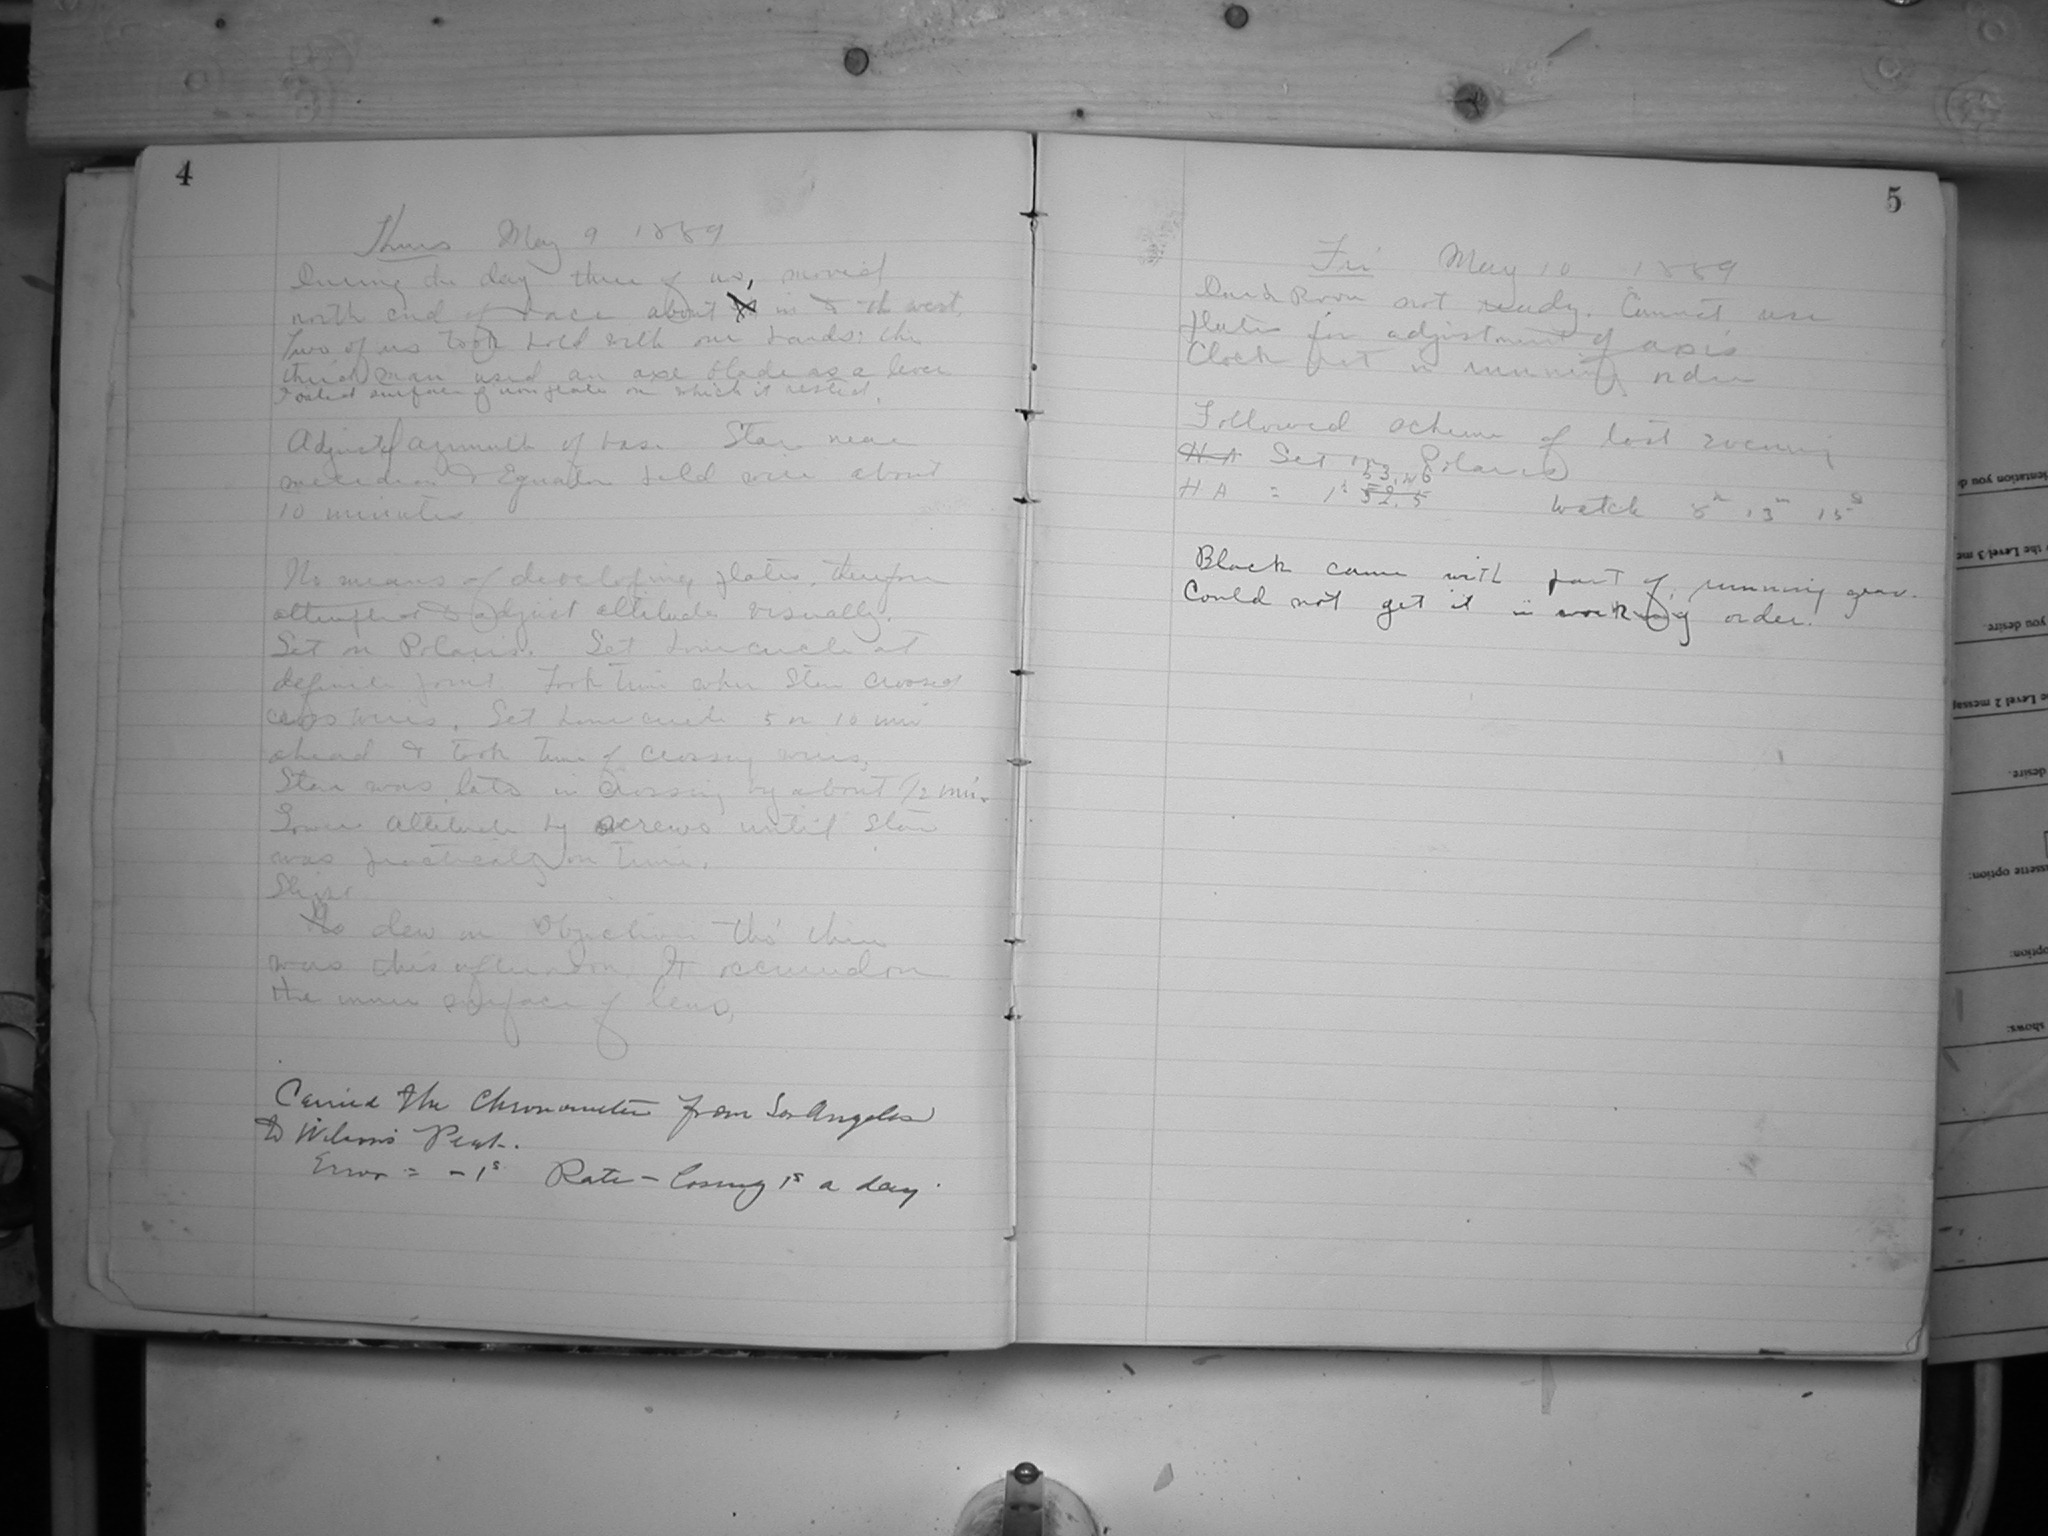 4
Thurs May 9 1889
During the day three of us, moved
north end of base about in to the west.
Two of us took hold with our hands; the
third man used an axe blade as a lever
surface of iron plate on which it rested.
Adjusted azimuth of base Star near
meridian & Equator held wire about
10 minutes
No means of developing plates, therefore
attempted to adjust altitude visually.
Set on Polaris. Set hour circle at
definite point Took time when Star crossed
cross wires. Set hour circle 5 or 10 min
ahead & took time of crossing wires.
Star was late in crossing by about 1/2 min.
Lower altitude by screws until Star
was practically on time.
No dew on Objective tho' there
was this afternoon. It occurred on
the inner surface of lens.
Carried the Chronometer from Los Angeles
to Wilson's Peak.
Error = - 1s Rate - losing 1s a day.
5
Fri May 10 1889
Dark Room not ready. Cannot use
plates for adjustment of axis
Clock not in running order
Followed scheme of last evening
H A Set on Polaris
53.46
H A = 1h 52.5 Watch 8h 13m 15s
Black came with part of running gear.
Could not get it in working order.